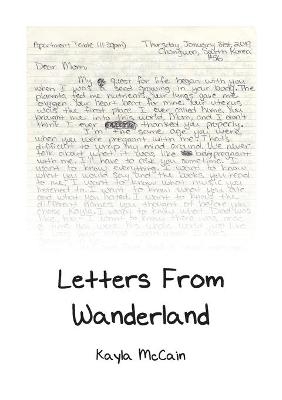 Apartment Table (11:30pm) Thursday, January 31st, 2019
Changwon, South Korea
Dear Mom,
My quest for life began with you
when I was a seed growing in your body. The
placenta fed me nutrients, your lungs gave me
oxygen. Your heart beat for mine. Your uterus
was the first place I ever called home. You
brought me into this world, Mom, and I don't
think I ever thanked you properly.
I'm the same age you were
when you were pregnant with me. That's
difficult to wrap my mind around. We never
talk about what it was like pregnant
with me. I'll have to ask you sometime. I
want to know everything. I want to know
what you would say and the books you read
to me. I want to know what music you
listened to. I want to know what you ate
and what you hated. I want to know the
different names you thought of before you
chose Kayla. I want to know what Dad was
like
Letters From
Wanderland
Kayla McCain